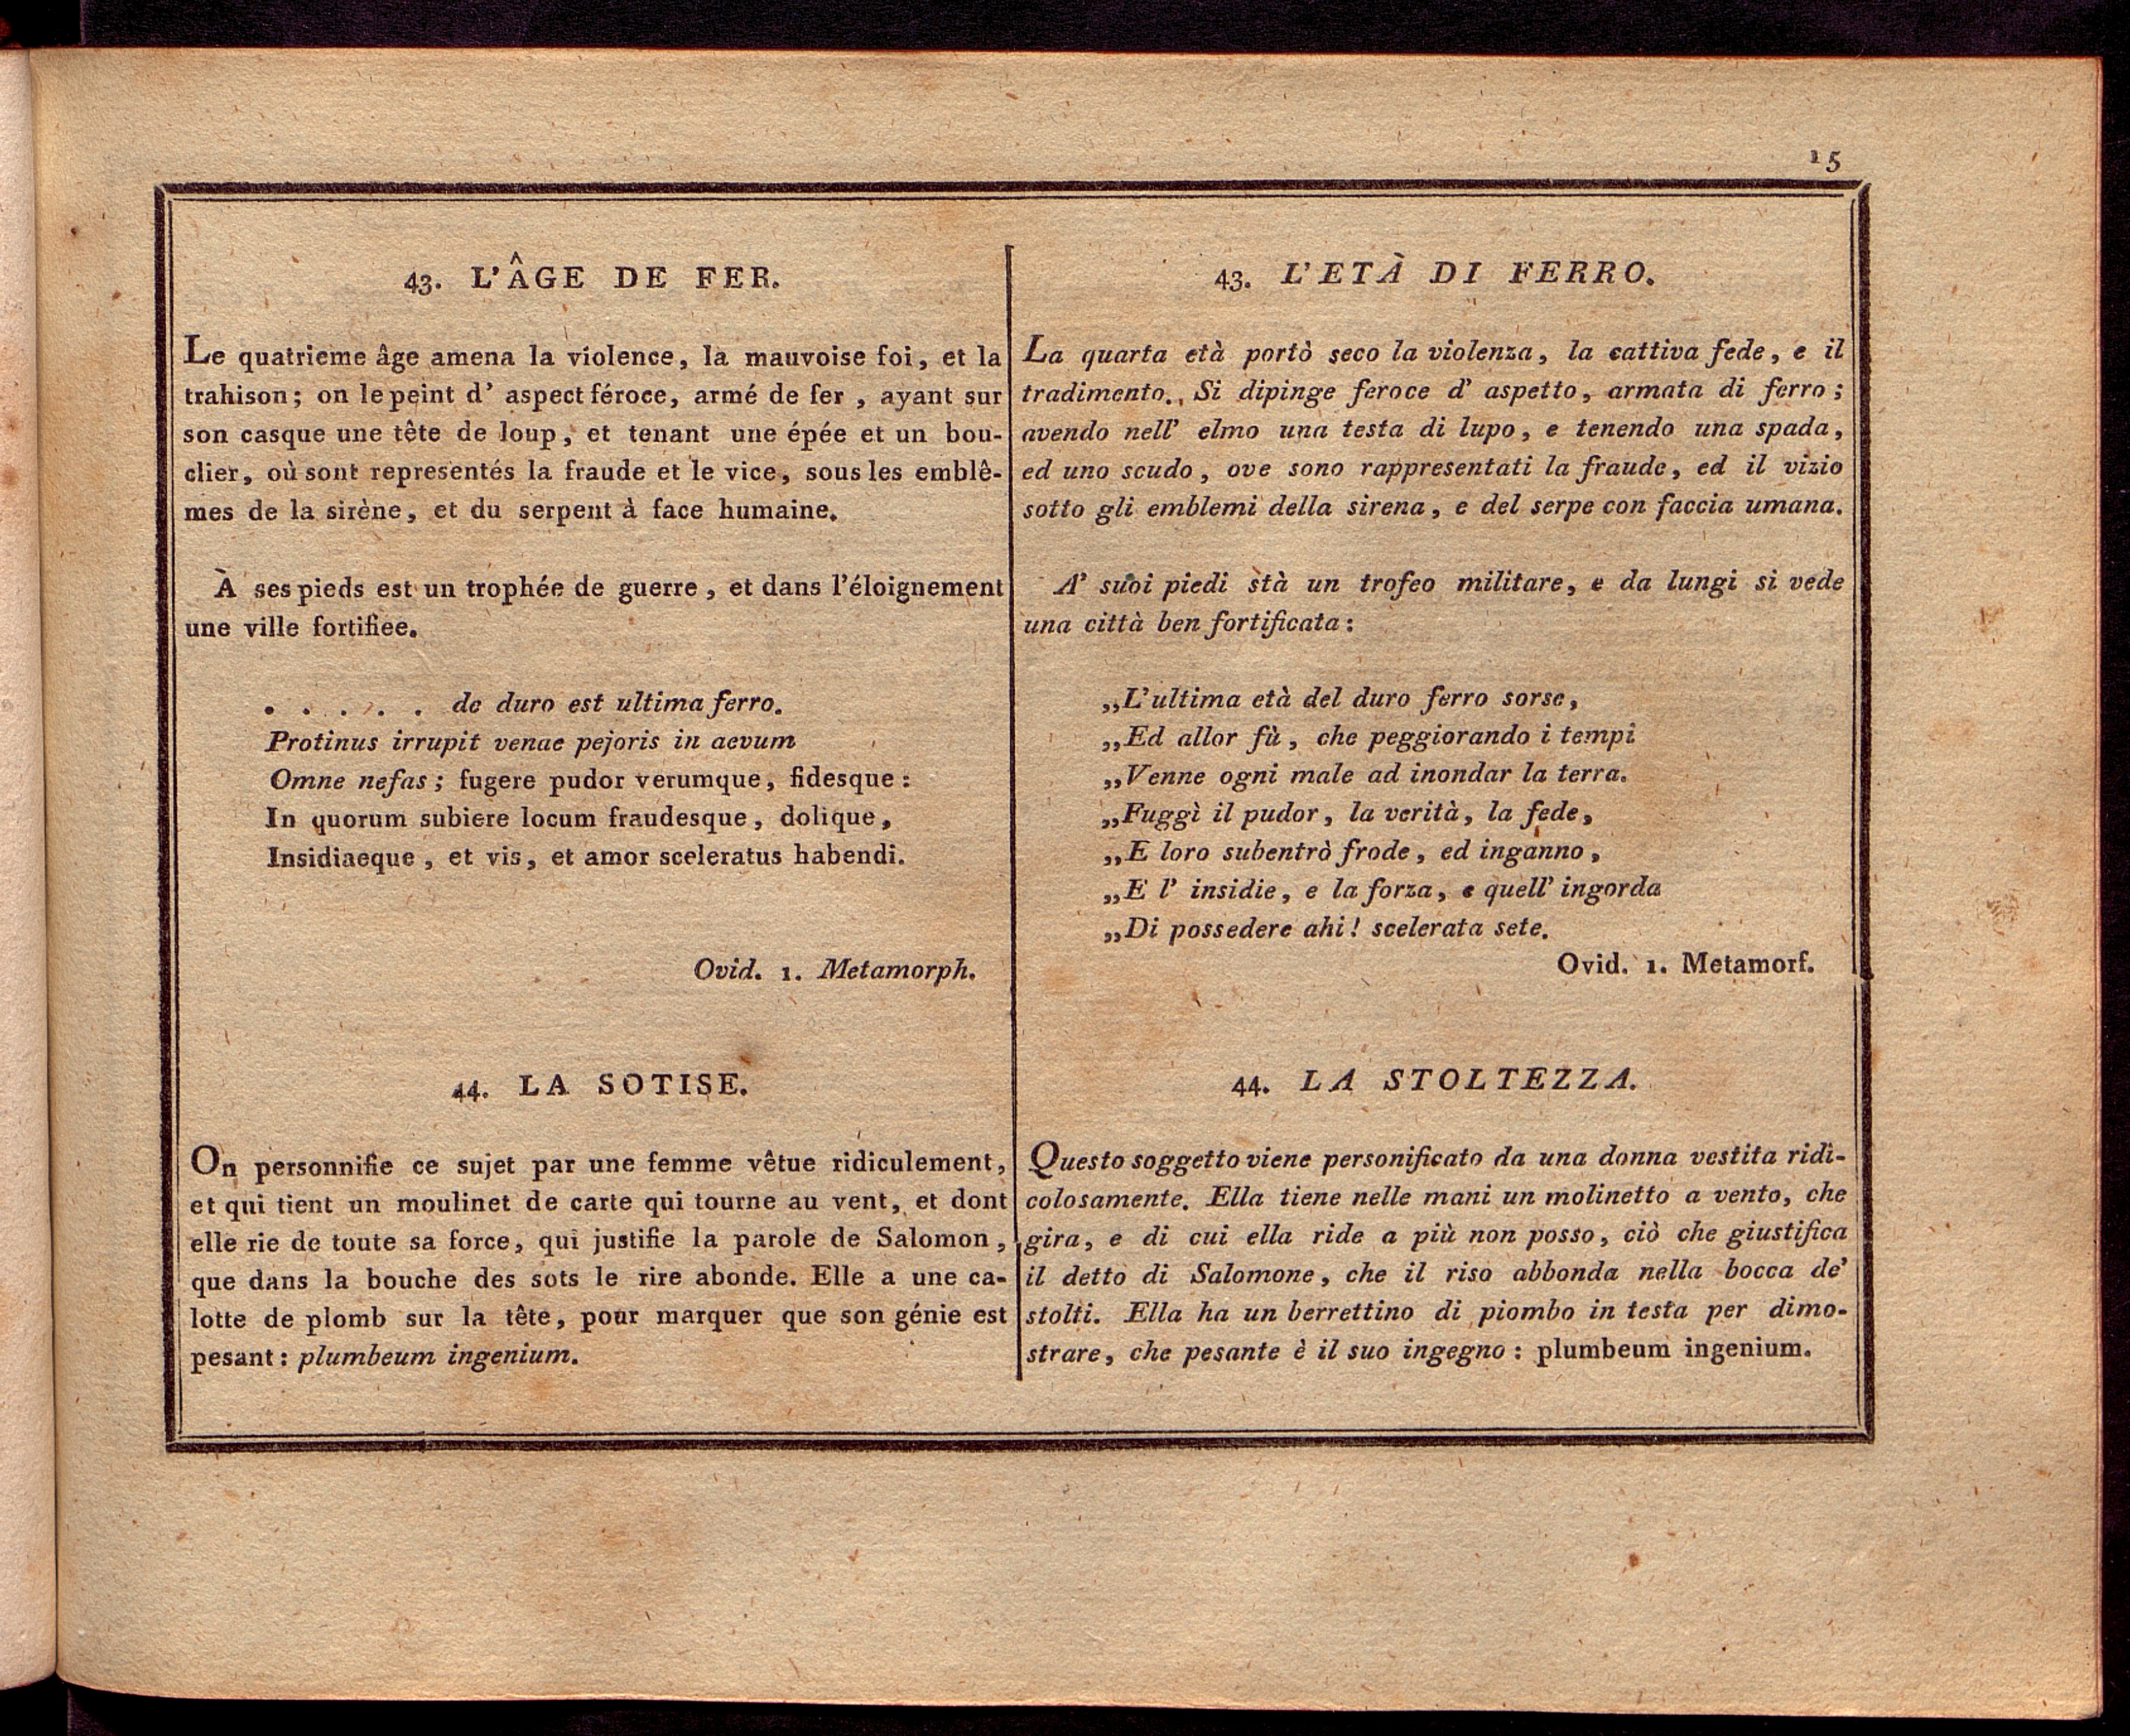 15
43. L'ÂGE DE FER.
Le quatrieme âge amena la violence, la mauvoise foi, et la
trahison; on le peint d' aspect féroce, armé de fer, ayant sur
son casque une tête de loup, et tenant une épée et un bou-
clier, où sont representés la fraude et le vice, sous les emblê-
mes de la sirène, et du serpent à face humaine.
À ses pieds est un trophée de guerre, et dans l'éloignement
une ville fortifiee.
. . . . . de duro est ultima ferro.
Protinus irrupit venae pejoris in aevum
Omne nefas; fugere pudor verumque, fidesque:
In quorum subiere locum fraudesque, dolique,
Insidiaeque, et vis, et amor sceleratus habendi.
Ovid. 1. Metamorph.
44. LA SOTISE.
On personnifie ce sujet par une femme vêtue ridiculement,
et qui tient un moulinet de carte qui tourne au vent, et dont
elle rie de toute sa force, qui justifie la parole de Salomon,
que dans la bouche des sots le rire abonde. Elle a une ca-
lotte de plomb sur la tête, pour marquer que son génie est
pesant: plumbeum ingenium.
43. L'ETÀ DI FERRO.
La quarta età portò seco la violenza, la cattiva fede, e il
tradimento. Si dipinge feroce d' aspetto, armata di ferro;
avendo nell' elmo una testa di lupo, e tenendo una spada,
ed uno scudo, ove sono rappresentati la fraude, ed il vizio
sotto gli emblemi della sirena, e del serpe con faccia umana.
A' suoi piedi stà un trofeo militare, e da lungi si vede
una città ben fortificata:
„L'ultima età del duro ferro sorse,
„Ed allor fù, che peggiorando i tempi
„Venne ogni male ad inondar la terra.
„Fuggì il pudor, la verità, la fede,
„E loro subentrò frode, ed inganno,
„E l' insidie, e la forza, e quell' ingorda
„Di possedere ahi! scelerata sete.
Ovid. 1. Metamorf.
44. LA STOLTEZZA.
Questo soggetto viene personificato da una donna vestita ridi-
colosamente. Ella tiene nelle mani un molinetto a vento, che
gira, e di cui ella ride a più non posso, ciò che giustifica
il detto di Salomone, che il riso abbonda nella bocca de'
stolti. Ella ha un berrettino di piombo in testa per dimo-
strare, che pesante è il suo ingegno: plumbeum ingenium.